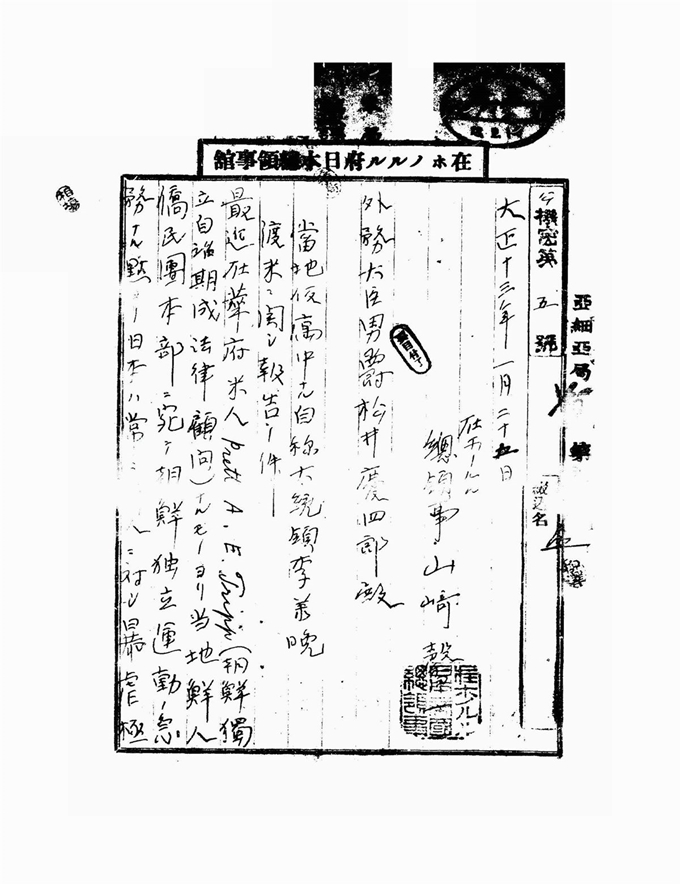 在ホノルル府日本總領事館
亞細亞局
機密第五號
大正十三年一月二十五日
在ホノルル
總領事山崎
外務大臣男爵松井慶四郎殿
當地仮寓中ナル自称大統領李承晩
渡米ニ関シ報告ノ件
最近在華府米人 A. E. Tripp(朝鮮獨
立自治期成法律顧問)ナルモノヨリ当地鮮人
僑民團本部ニ宛テ朝鮮独立運動ノ急
務ナル點ノ日本ハ常ニ人ニ対シ暴虐極